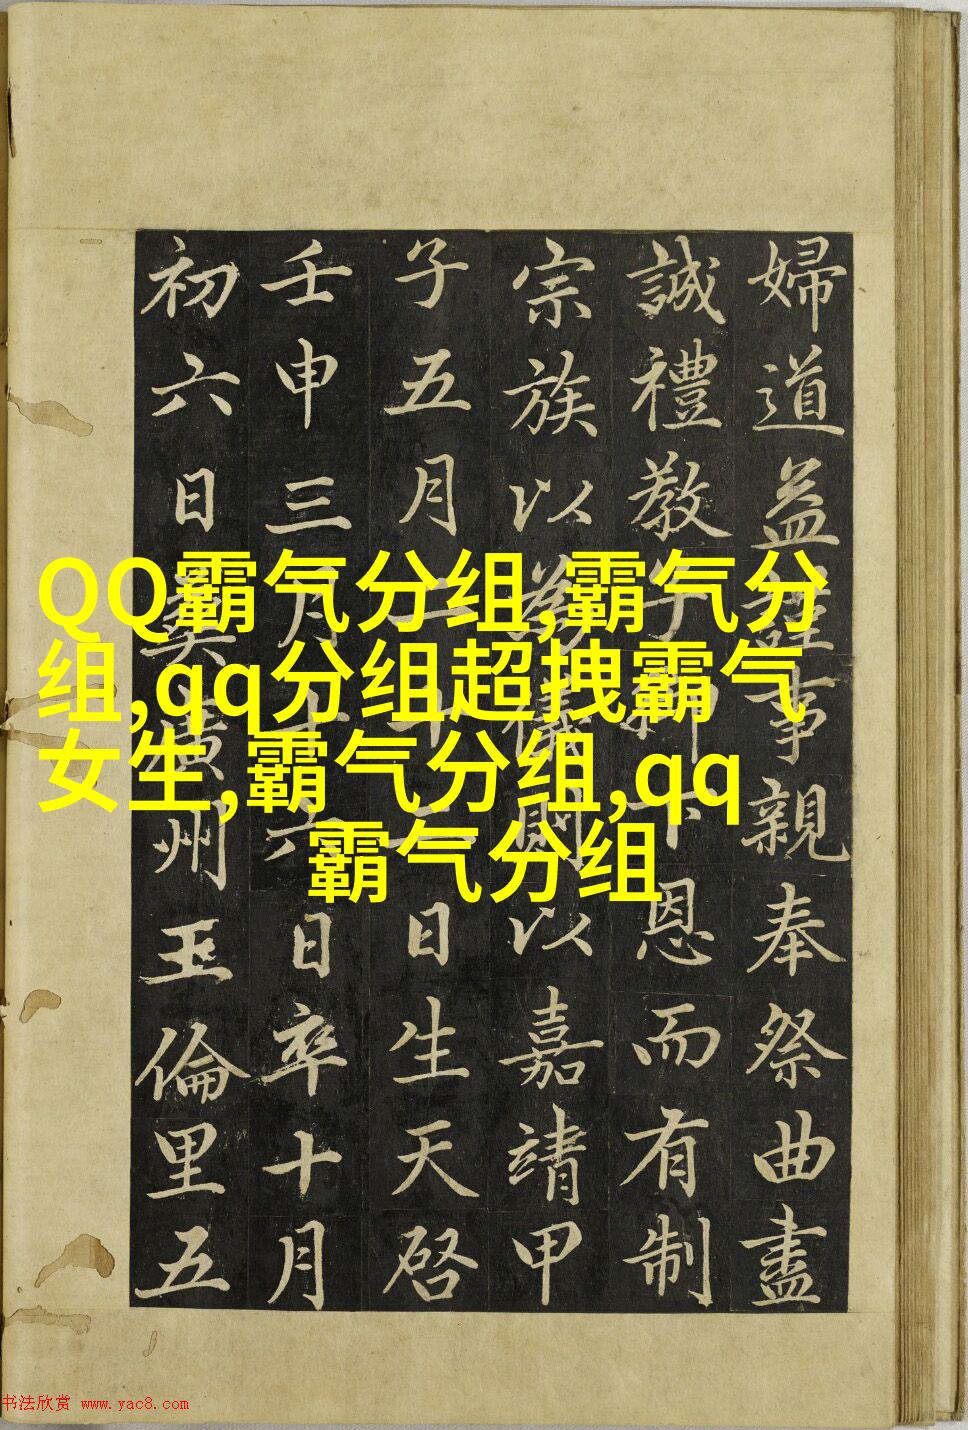 QQ霸气分组,霸气分
组,qq分组超拽霸气
女生,霸气分组,qq
霸气分组
婦道益謹事親奉祭曲盡
誠禮教子御下恩而有制
宗族以為儀以嘉靖甲
子五月十二日生天啓
壬申三月十六日卒十月
初六日廣州玉倫里五
书法欣赏 www.yac8.com